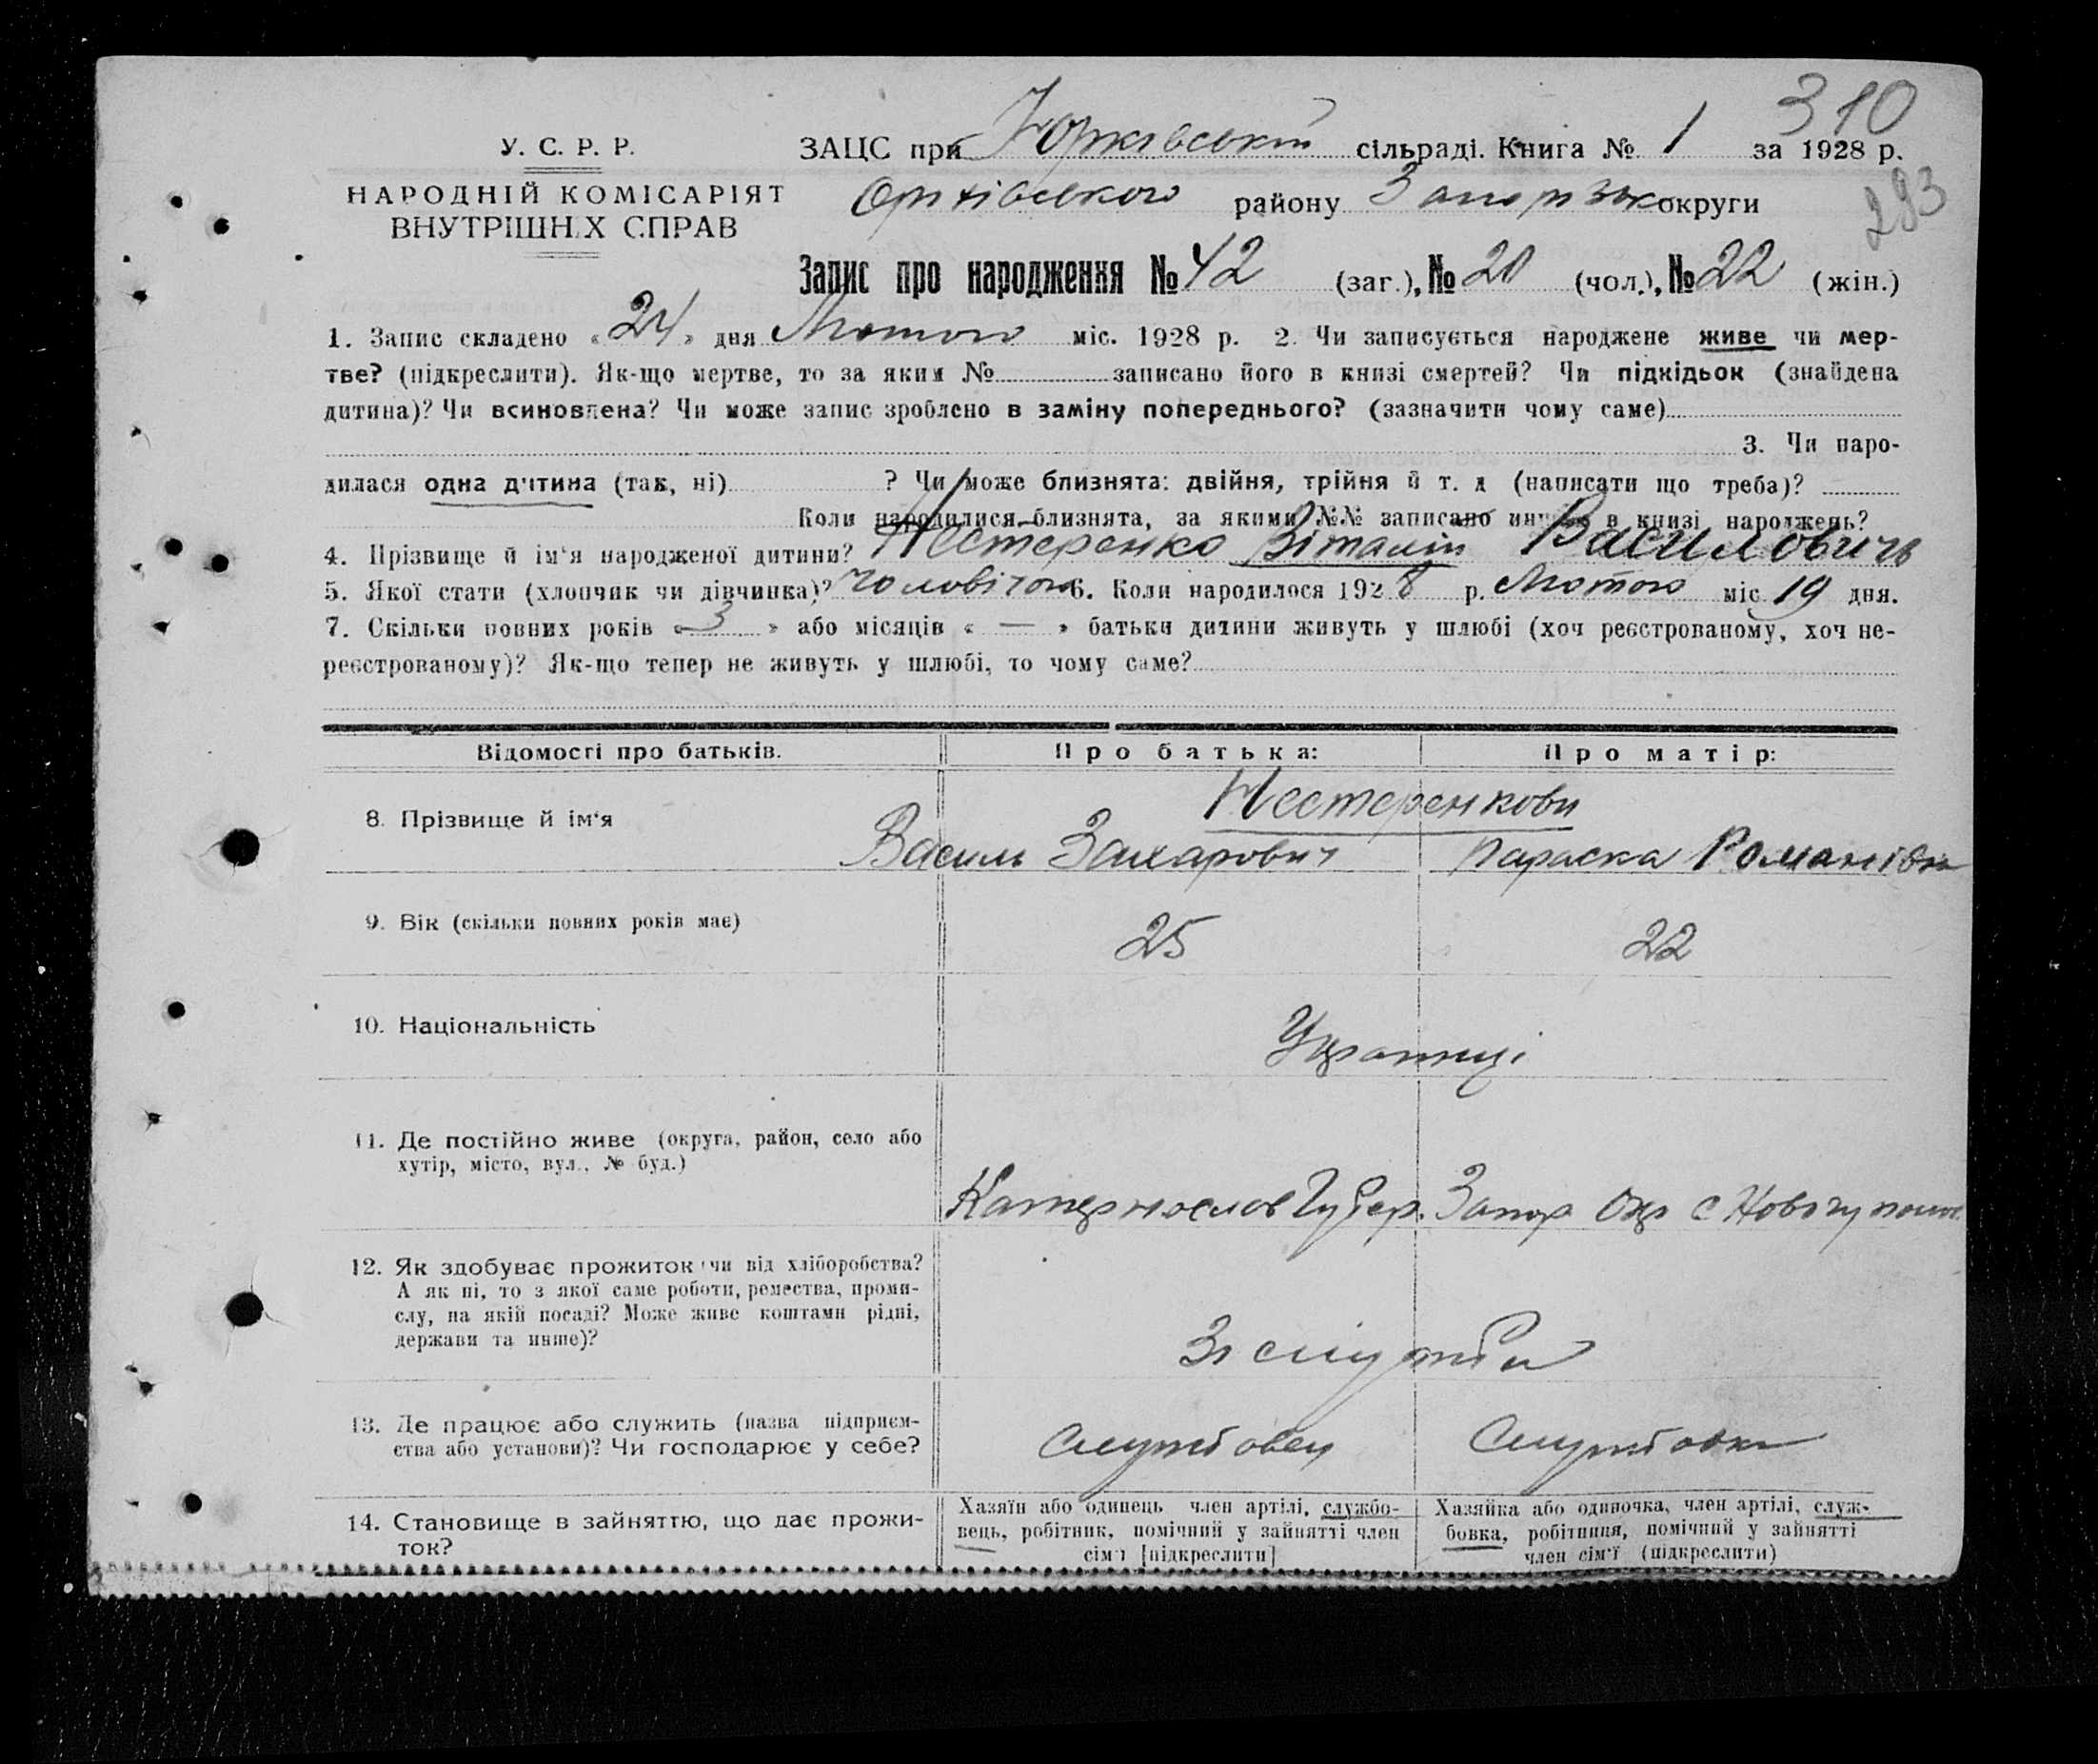 310
У. С. Р. Р.
ЗАЦС при Юрківській сільраді. Книга № 1 за 1928 р.
НАРОДНІЙ КОМІСАРІЯТ
Оріхівського району Запорізьк округи
293
ВНУТРІШНІХ СПРАВ
Запис про народження № 42 (заг.), № 20 (чол.), № 22 (жін.)
1. Запис складено « 24 » дня Лютого міс. 1928 р. 2. Чи записується народжене живе чи мер-
тве? (підкреслити). Як-що мертве, то за яким № записано його в книзі смертей? Чи підкідьок (знайдена
дитина)? Чи всиновлена? Чи може запис зроблено в заміну попереднього? (зазначити чому саме)
3. Чи наро-
дилася одна дитина (так, ні) ? Чи може близнята: двійня, трійня й т. д (написати що треба)?
Коли народилися близнята, за якими №№ записано инших в книзі народжень?
4. Прізвище й ім'я народженої дитини? Нестеренко Віталій Василовичь
5. Якої стати (хлопчик чи дівчинка)? Чоловічої 6. Коли народилося 1928 р. Лютого міс 19 дня.
7. Скільки повних років « 3 » або місяців « — » батьки дитини живуть у шлюбі (хоч реєстрованому, хоч не-
реєстрованому)? Як-що тепер не живуть у шлюбі, то чому саме?
Відомості про батьків. Про батька: Про матір:
Нестеренкови
8. Прізвище й ім'я Василь Захарович Параска Романівна
9. Вік (скільки повних років має) 25 22
10. Національність Українці
11. Де постійно живе (округа, район, село або
хутір, місто, вул., № буд.)
Катернослов Губер. Запор Окр с
12. Як здобуває прожиток (чи від хліборобства?
А як ні, то з якої саме роботи, ремества, проми-
слу, на якій посаді? Може живе коштами рідні,
держави та инше)?
Зі служби
13. Де працює або служить (назва підприєм-
ства або установи)? Чи господарює у себе?
Службовец Службовка
14. Становище в зайняттю, що дає прожи-
ток?
Хазяїн або одинець член артілі, службо-
вець, робітник, помічний у зайнятті член
сім'ї [підкреслити]
Хазяйка або одиночка, член артілі, служ-
бовка, робітниця, помічний у зайнятті
член сім'ї (підкреслити)